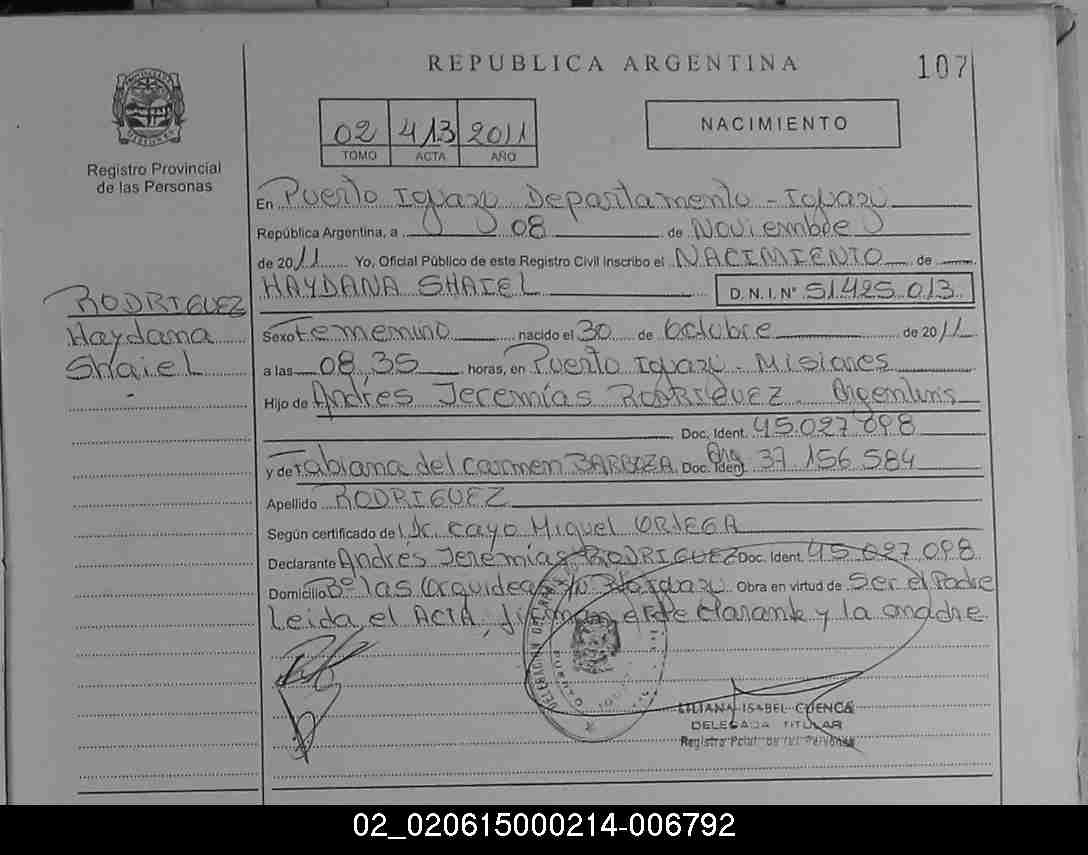 REPUBLICA ARGENTINA
107
Registro Provincial
de las Personas
02 413 2011
TOMO ACTA AÑO
NACIMIENTO
En Puerto Iguazu Departamento - Iguazu
República Argentina, a 08 de Noviembre
de 2011 Yo, Oficial Público de este Registro Civil Inscribo el NACIMIENTO de
HAYDANA SHAIEL D.N.I. N° 51.425.013
RODRIGUEZ
Haydana
Shaiel
Sexo Femenino nacido el 30 de Octubre de 2011
a las 08.35 horas, en Puerto Iguazu - Misiones
Hijo de Andrés Jeremías RODRIGUEZ - Argentino
Doc. Ident. 45.027.098
y de Fabiana del carmen BARBOZA Arg Doc. Ident. 37.156.584
Apellido RODRIGUEZ
Según certificado de Dr. Cayo Miguel ORTEGA
Declarante Andrés Jeremías RODRIGUEZ Doc. Ident. 45.027.098
Domicilio B° las Orquideas s/n Pto Iguazu Obra en virtud de Ser el Padre
Leida el ACTA, firman el declarante y la madre
LILIANA ISABEL CUENCA
DELEGADA TITULAR
Registro Pcial. de las Personas
02_020615000214-006792